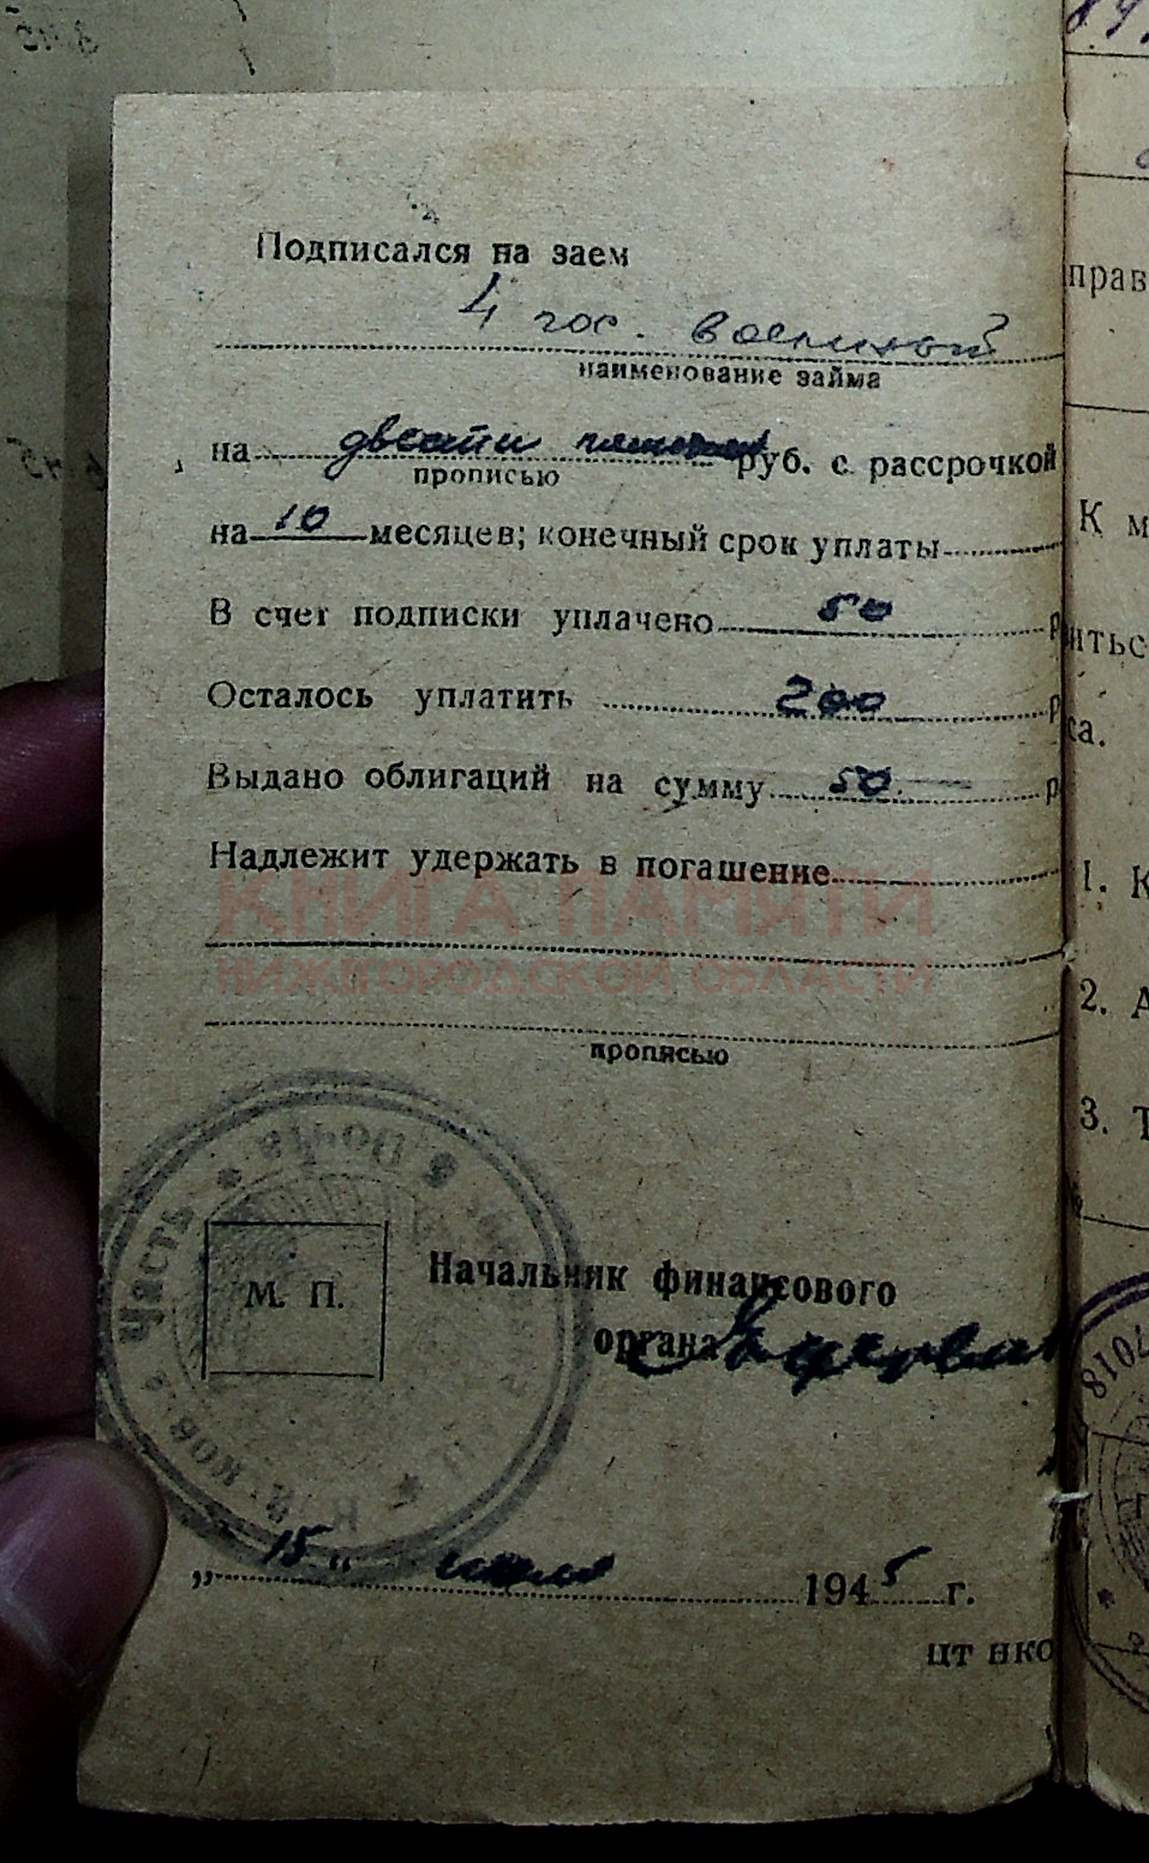 Подписался на заем
4 гос. военной
наименование займа
на двести пятьдесят руб. с рассрочкой
прописью
на 10 месяцев; конечный срок уплаты
В счет подписки уплачено 50 р
Осталось уплатить 200 р
Выдано облигаций на сумму 50 р
Надлежит удержать в погашение
КНИГА ПАМЯТИ
НИЖЕГОРОДСКОЙ ОБЛАСТИ
прописью
Часть
М. П.
Начальник финансового
органа
„15“ 1945 г.
цт нко
прав
К м
иться
са.
1. К
2. А
3. Т
7018